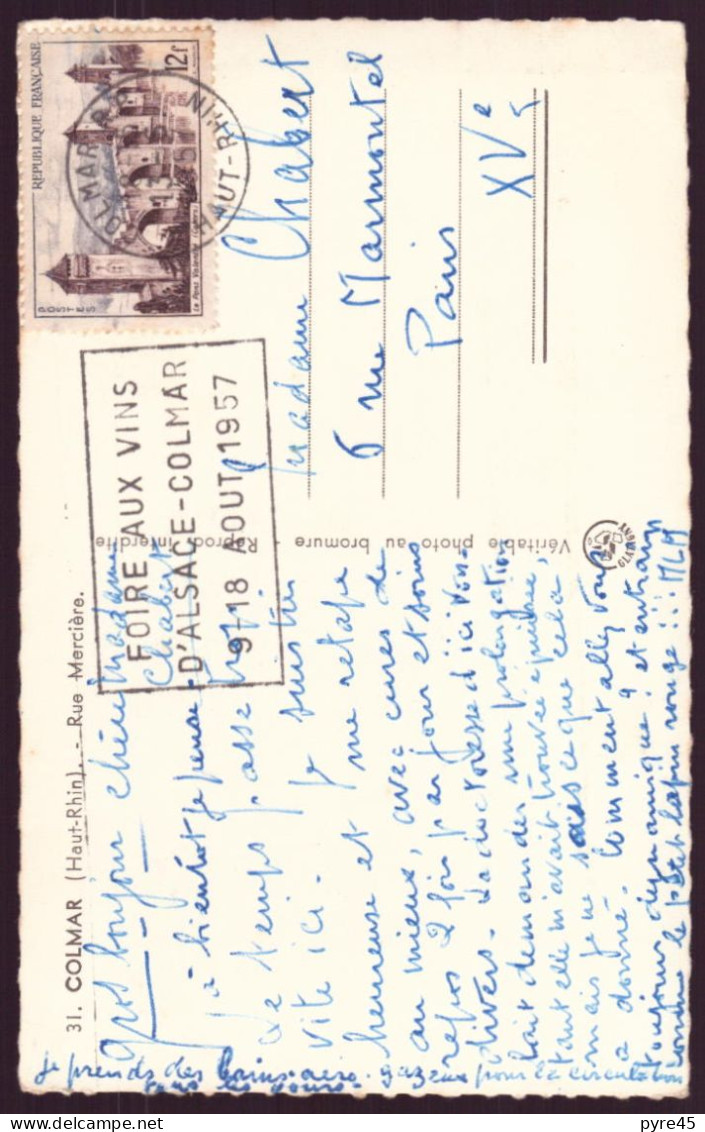 31. COLMAR (Haut-Rhin). - Rue Mercière.
gros bonjour chère madame
Chabert
à bientôt je pense
Le temps passe trop
vite ici. Je suis très
heureuse et me retape
au mieux, avec cures de
repos 2 fois par jour et soins
divers. La doctoresse d'ici vou-
lait demander une prolongation
tant elle m'avait trouvée épuisée,
mais je ne sais ce que cela
a donné. Comment allez vous
toujours dynamique ? et entrain
le petit lapin rouge !! MLM
je prends des bains aéro-gazeux pour la circulation
tous les jours.
Véritable photo au bromure - Reprod. interdite
REPUBLIQUE FRANÇAISE
12f
POSTES
COLMAR RP
HAUT-RHIN
FOIRE AUX VINS
D'ALSACE-COLMAR
9-18 AOUT 1957
Madame Chabert
6 rue Marmontel
Paris
XVe